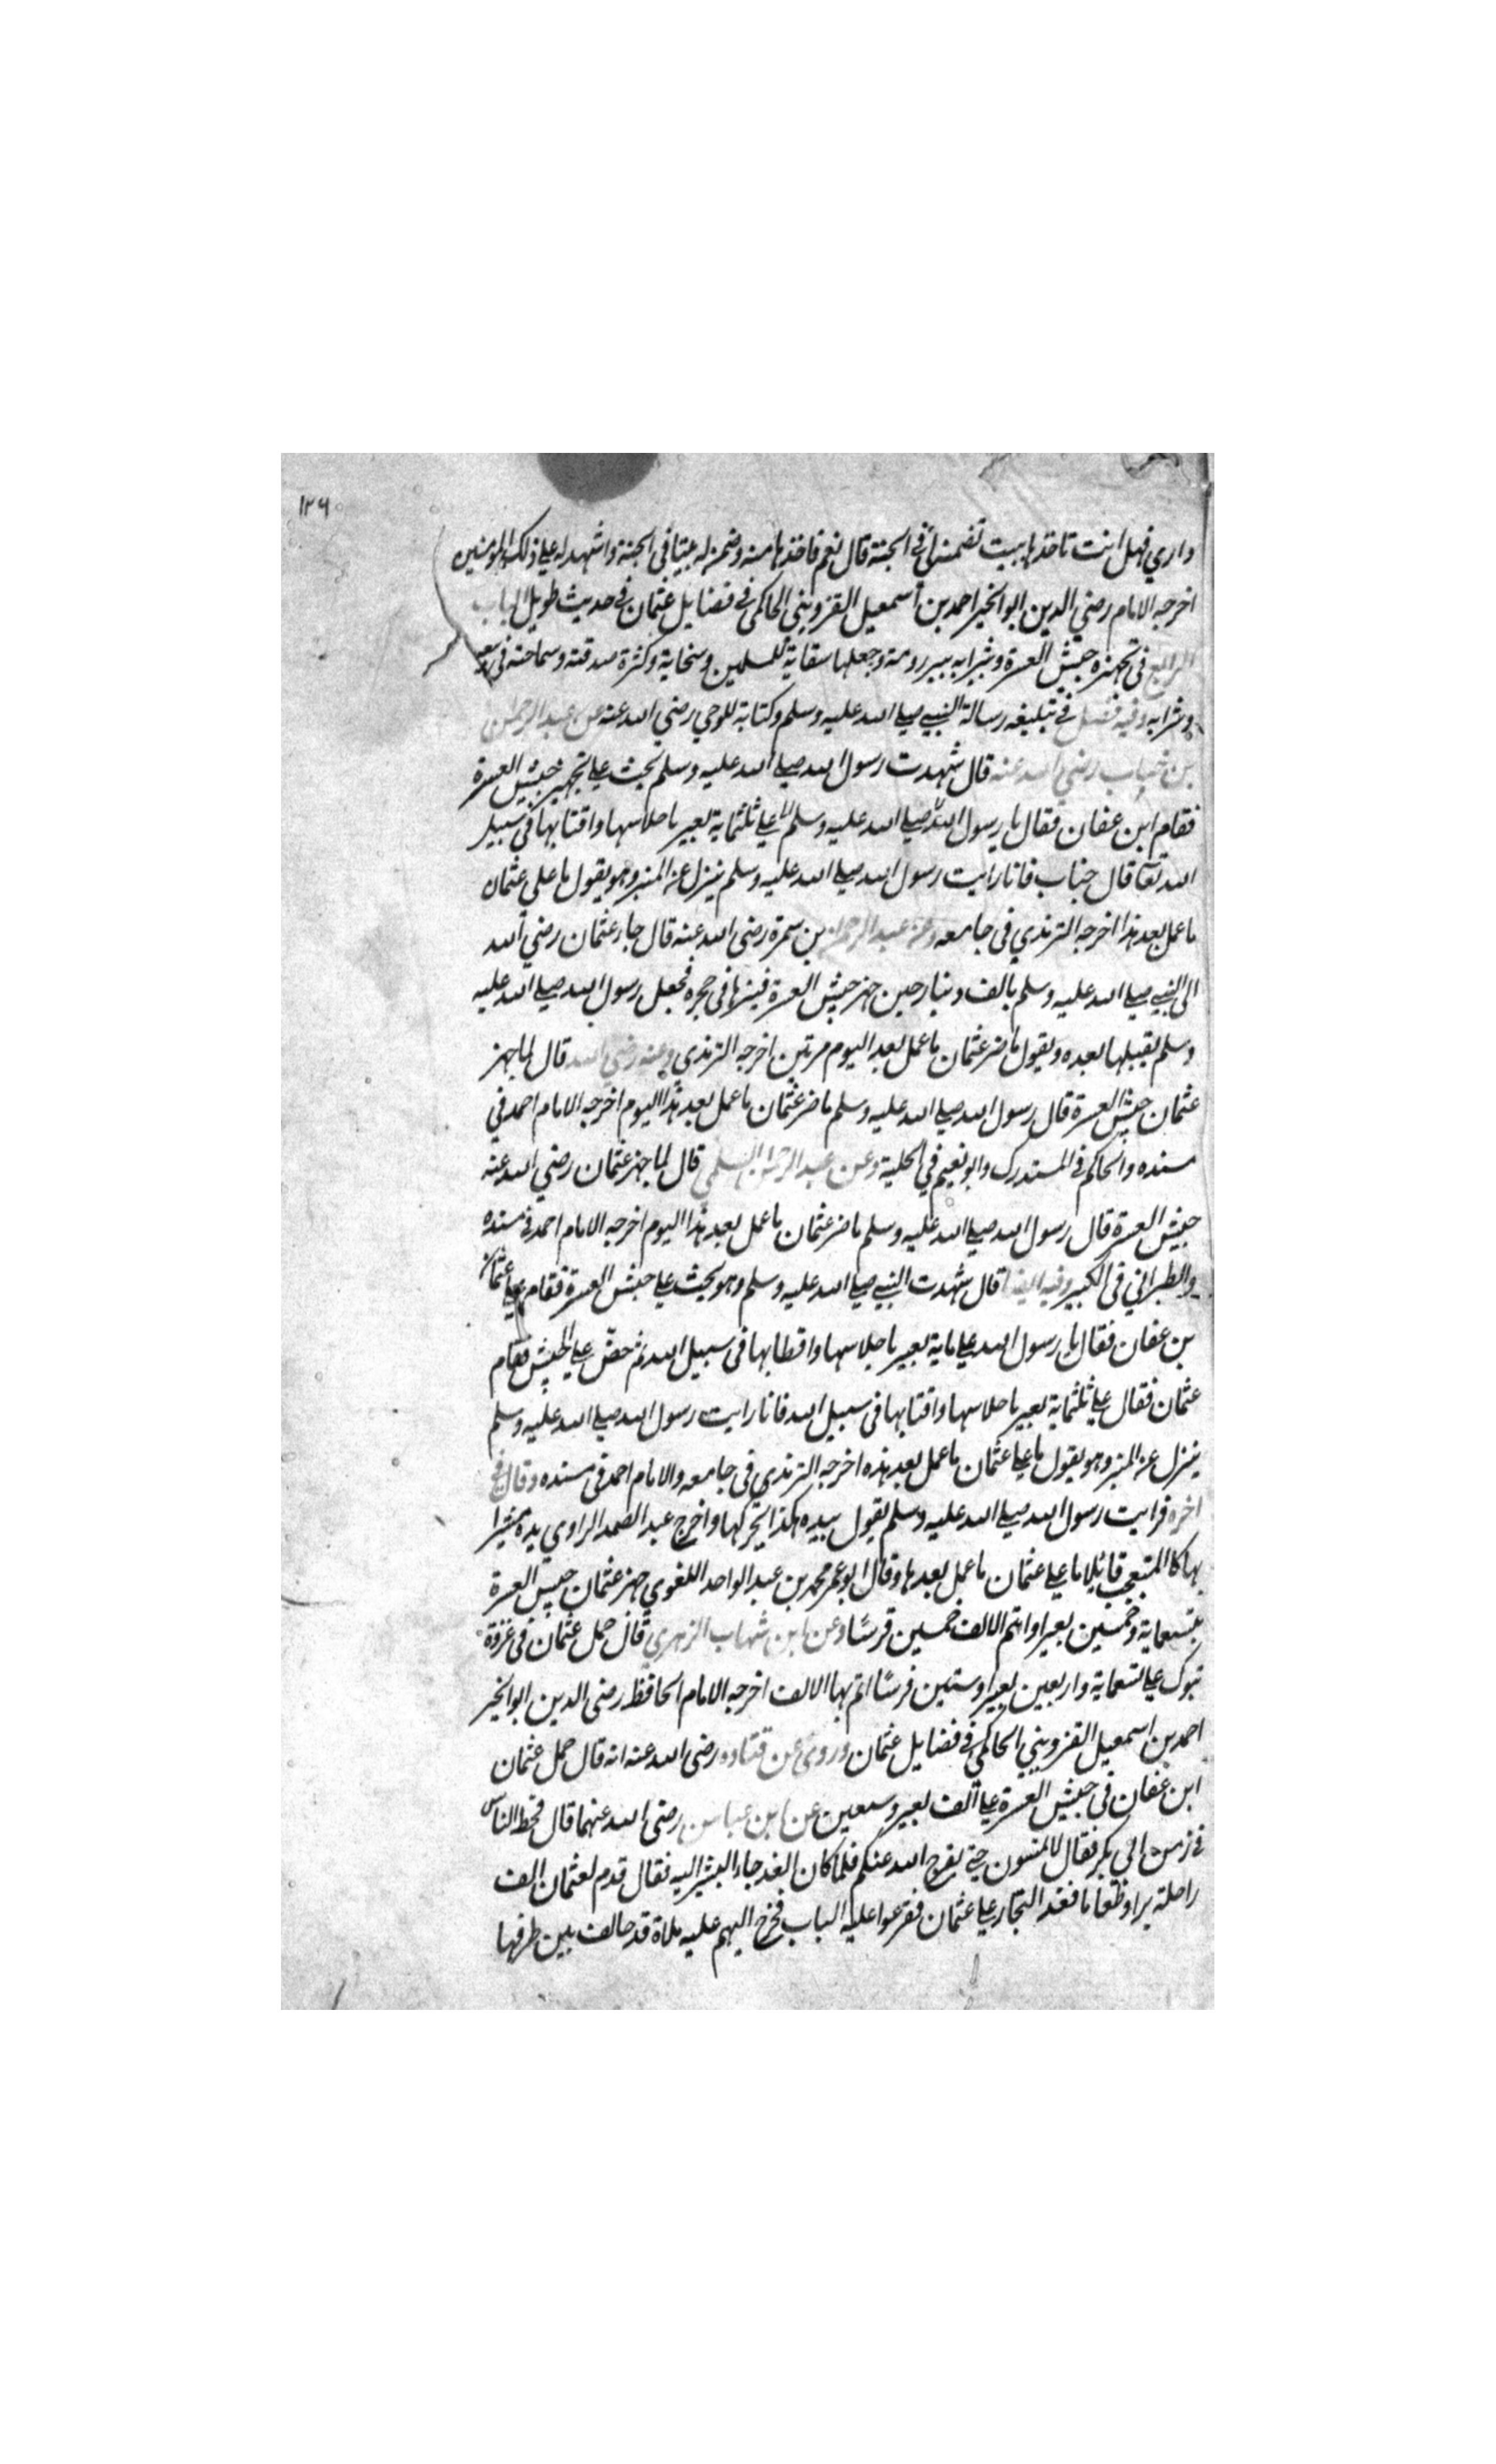 ١٢٦
داري فهل انت تاخذها ببيت تضمنه لي في الجنة قال نعم فاخذها منه وضمن له بيتا في الجنة واشهد له علي ذلك المومنين
اخرجه الامام رضي الدين ابو الخير احمد بن اسمعيل القزويني الحاكمي في فضايل عثمان في حديث طويل الباب
الرابع في تجهيزه جيش العسرة وشرايه بير رومة وجعلها سقاية للمسلمين وسخاية وكثرة صدقته وسماحته في بيعه
وشرايه وفيه فضل في تبليغه رسالة النبي صلي الله عليه وسلم وكتابة للوحي رضي الله عنه عن عبد الرحمن
بن خباب رضي الله عنه قال شهدت رسول الله صلي الله عليه وسلم يحث علي تجهيز جيش العسرة
فقام ابن عفان فقال يا رسول الله صلي الله عليه وسلم علي ثلثماية بعير باحلاسها واقتابها في سبيل
الله تعا قال خباب فانا رايت رسول الله صلي الله عليه وسلم ينزل عن المنبر وهو يقول ما علي عثمان
ما عمل بعد هذا اخرجه الترمذي في جامعه وعن عبد الرحمن بن سمرة رضي الله عنه قال جاء عثمان رضي الله
الي النبي صلي الله عليه وسلم بالف دينار حين جهز جيش العسرة فينزها في حجره فجعل رسول الله صلي الله عليه
وسلم يقبلها بعده ويقول ما ضر عثمان ما عمل بعد اليوم مرتين اخرجه الترمذي وعنه رضي الله قال لما جهز
عثمان جيش العسرة قال رسول الله صلي الله عليه وسلم ما ضر عثمان ما عمل بعد هذا اليوم اخرجه الامام احمد في
مسنده والحاكم في المستدرك وابو نعيم في الحلية وعن عبد الرحمن السلمي قال لما جهز عثمان رضي الله عنه
جيش العسرة قال رسول الله صلي الله عليه وسلم ما ضر عثمان ما عمل بعد هذا اليوم اخرجه الامام احمد في مسنده
والطبراني في الكبير وفيه ايضا قال شهدت النبي صلي الله عليه وسلم وهو يحث علي جيش العسرة فقام عثمان
بن عفان فقال يا رسول الله علي ماية بعير باحلاسها واقطابها في سبيل الله ثم حض علي الجيش فقام
عثمان فقال علي ثلثماية بعير باحلاسها واقتابها في سبيل الله فانا رايت رسول الله صلي الله عليه وسلم
ينزل عن المنبر وهو يقول ما علي عثمان ما عمل بعد هذه اخرجه الترمذي في جامعه والامام احمد في مسنده وقال في
اخره فرايت رسول الله صلي الله عليه وسلم يقول بيده هكذا يحركها واخرج عبد الصمد الراوي يده مشيرا
بها كالمتعجب قايلا ما علي عثمان ما عمل بعدها وقال ابو عمر محمد بن عبد الواحد اللغوي جهز عثمان جيش العسرة
بتسعماية وخمسين بعيرا واتم الالف خمسين فرسا وعن ابن شهاب الزهري قال حمل عثمان في غزوة
تبوك علي تسعماية واربعين بعيرا وستين فرسا اتم بها الالف اخرجه الامام الحافظ رضي الدين ابو الخير
احمد بن اسمعيل القزويني الحاكمي في فضايل عثمان وروي عن قتاده رضي الله عنه انه قال حمل عثمان
ابن عفان في جيش العسرة علي الف بعير وسبعين عن ابن عباس رضي الله عنهما قال قحط الناس
في زمن ابي بكر فقال لا تمسون حتي يفرج الله عنكم فلما كان الغد جاء البشير اليه فقال قدم لعثمان الف
راحلة برا وطعاما فغد التجار علي عثمان فقرعوا عليه الباب فخرج اليهم عليه ملاة قد خالف بين طرفيها